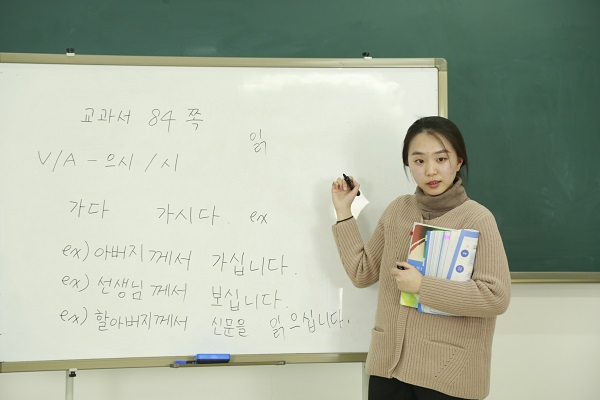 교과서 84 쪽
읽
V/A - 으시 / 시
가다 가시다. ex
ex) 아버지께서 가십니다.
ex) 선생님께서 보십니다.
ex) 할아버지께서 신문을 읽으십니다.